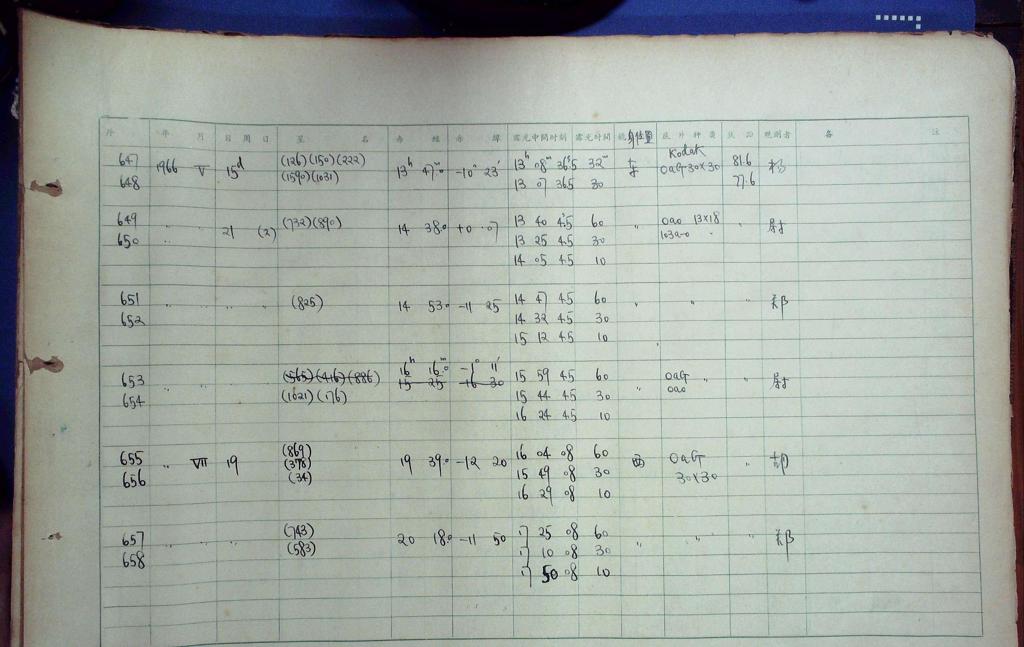 片 年 月 日 周 日 星 名 赤 經 赤 緯 露光中間时刻 露光时间 鏡身位置 底片种类 底 观测者 备 注
647 1966 V 15d (126)(150)(222) 13h 47m0 -10° 23' 13h 08m 36s5 32m 东 Kodak OaG 30×30 81.6 杨
648 (1590)(1031) 13 07 365 30 77.6
649 21 (2) (732)(890) 14 380 +0 07 13 40 45 60 " Oao 13×18 "
650 " " 13 25 45 30 103a-0 "
14 05 45 10
651 " " " (825) 14 530 -11 25 14 47 45 60 " " " 郑
652 14 32 45 30
15 12 45 10
653 " " (565)(416)(886) 16h 16m0 -1° 11' 15 25 -16 30 15 59 45 60 " OaG " "
654 (1621)(176) 15 44 45 30 Oao
16 24 45 10
655 " VII 19 (869) 19 390 -12 20 16 04 08 60 西 OaG "
(378) 15 49 08 30
656 (34) 30×30
16 29 08 10
657 " " " (743) 20 180 -11 50 17 25 08 60 " " " 郑
658 (583) 17 10 08 30
17 50 08 10